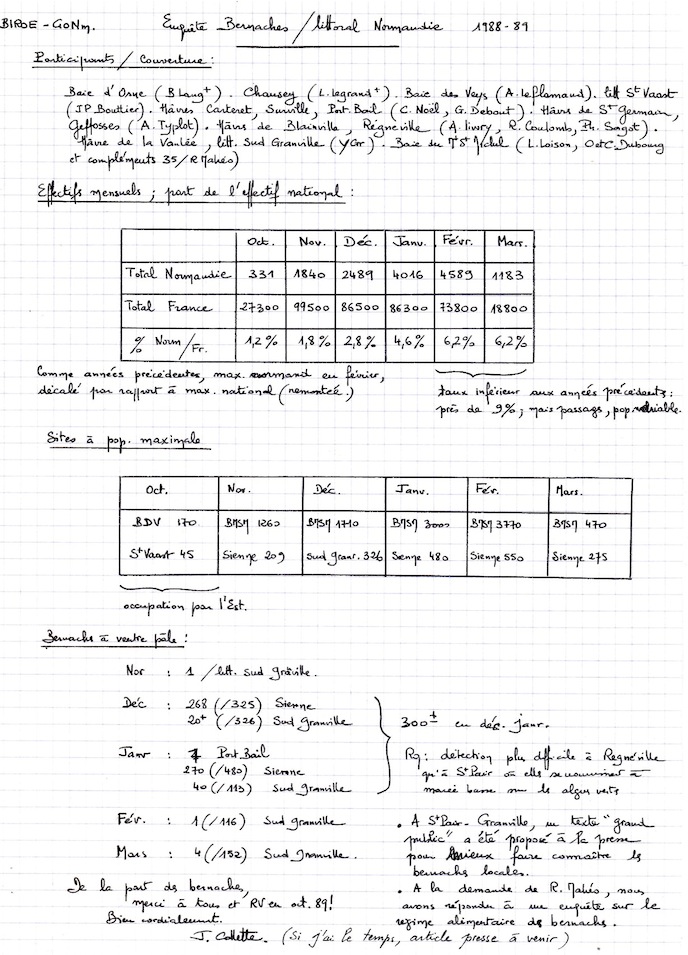 BIROE - GONm. Enquête Bernaches / littoral Normandie 1988-89
Participants / Couverture :
Baie d'Orne (B Lang+). Chausey (L. Legrand+). Baie des Veys (A. Leflamand). litt St Vaast
(JP Bouttier). Hâvres Carteret, Surville, Port Bail (C. Noël, G. Debout). Hâvres de St Germain,
Geffosses (A. Typlot). Hâvres de Blainville, Régneville (A. livory, R. Coulomb, Ph. Sagot).
Hâvre de la Vanlée, litt. Sud Granville (YGr). Baie du Mt St Michel (L. Loison, O et C. Dubourg
et compléments 35/R Mahéo)
Effectifs mensuels ; part de l'effectif national :
Oct. Nov. Déc. Janv. Févr. Mars.
Total Normandie 331 1840 2489 4016 4589 1183
Total France 27300 99500 86500 86300 73800 18800
% Norm/Fr. 1,2% 1,8% 2,8% 4,6% 6,2% 6,2%
Comme années précédentes, max. normand en février,
décalé par rapport à max. national (remontée.)
taux inférieur aux années précédentes :
près de 9% ; mais passage, pop. variable.
Sites à pop. maximale
Oct. Nov. Déc. Janv. Fév. Mars.
BDV 170 BMSM 1260 BMSM 1710 BMSM 3000 BMSM 3770 BMSM 470
St Vaast 45 Sienne 209 Sud Granv. 326 Sienne 480 Sienne 550 Sienne 275
occupation par l'Est.
Bernache à ventre pâle :
Nov : 1 / litt. Sud Granville.
Déc : 268 (/325) Sienne
20+ (/326) Sud Granville
300± en déc. janv.
Janv : 1 Port Bail
270 (/480) Sienne
40 (/113) Sud Granville
Rq : détection plus difficile à Regnéville
qu'à St Pair où elles se nourrissent à
marée basse sur les algues vertes
Fév. : 1 (/116) Sud Granville
Mars : 4 (/152) Sud Granville.
. A St Pair - Granville, un texte "grand
public" a été proposé à la presse
pour mieux faire connaître les
bernaches locales.
. A la demande de R. Mahéo, nous
avons répondu à une enquête sur le
régime alimentaire des bernaches.
De la part des bernaches,
merci à tous et RV en oct. 89!
Bien cordialement.
J. Collette. (Si j'ai le temps, article presse à venir)